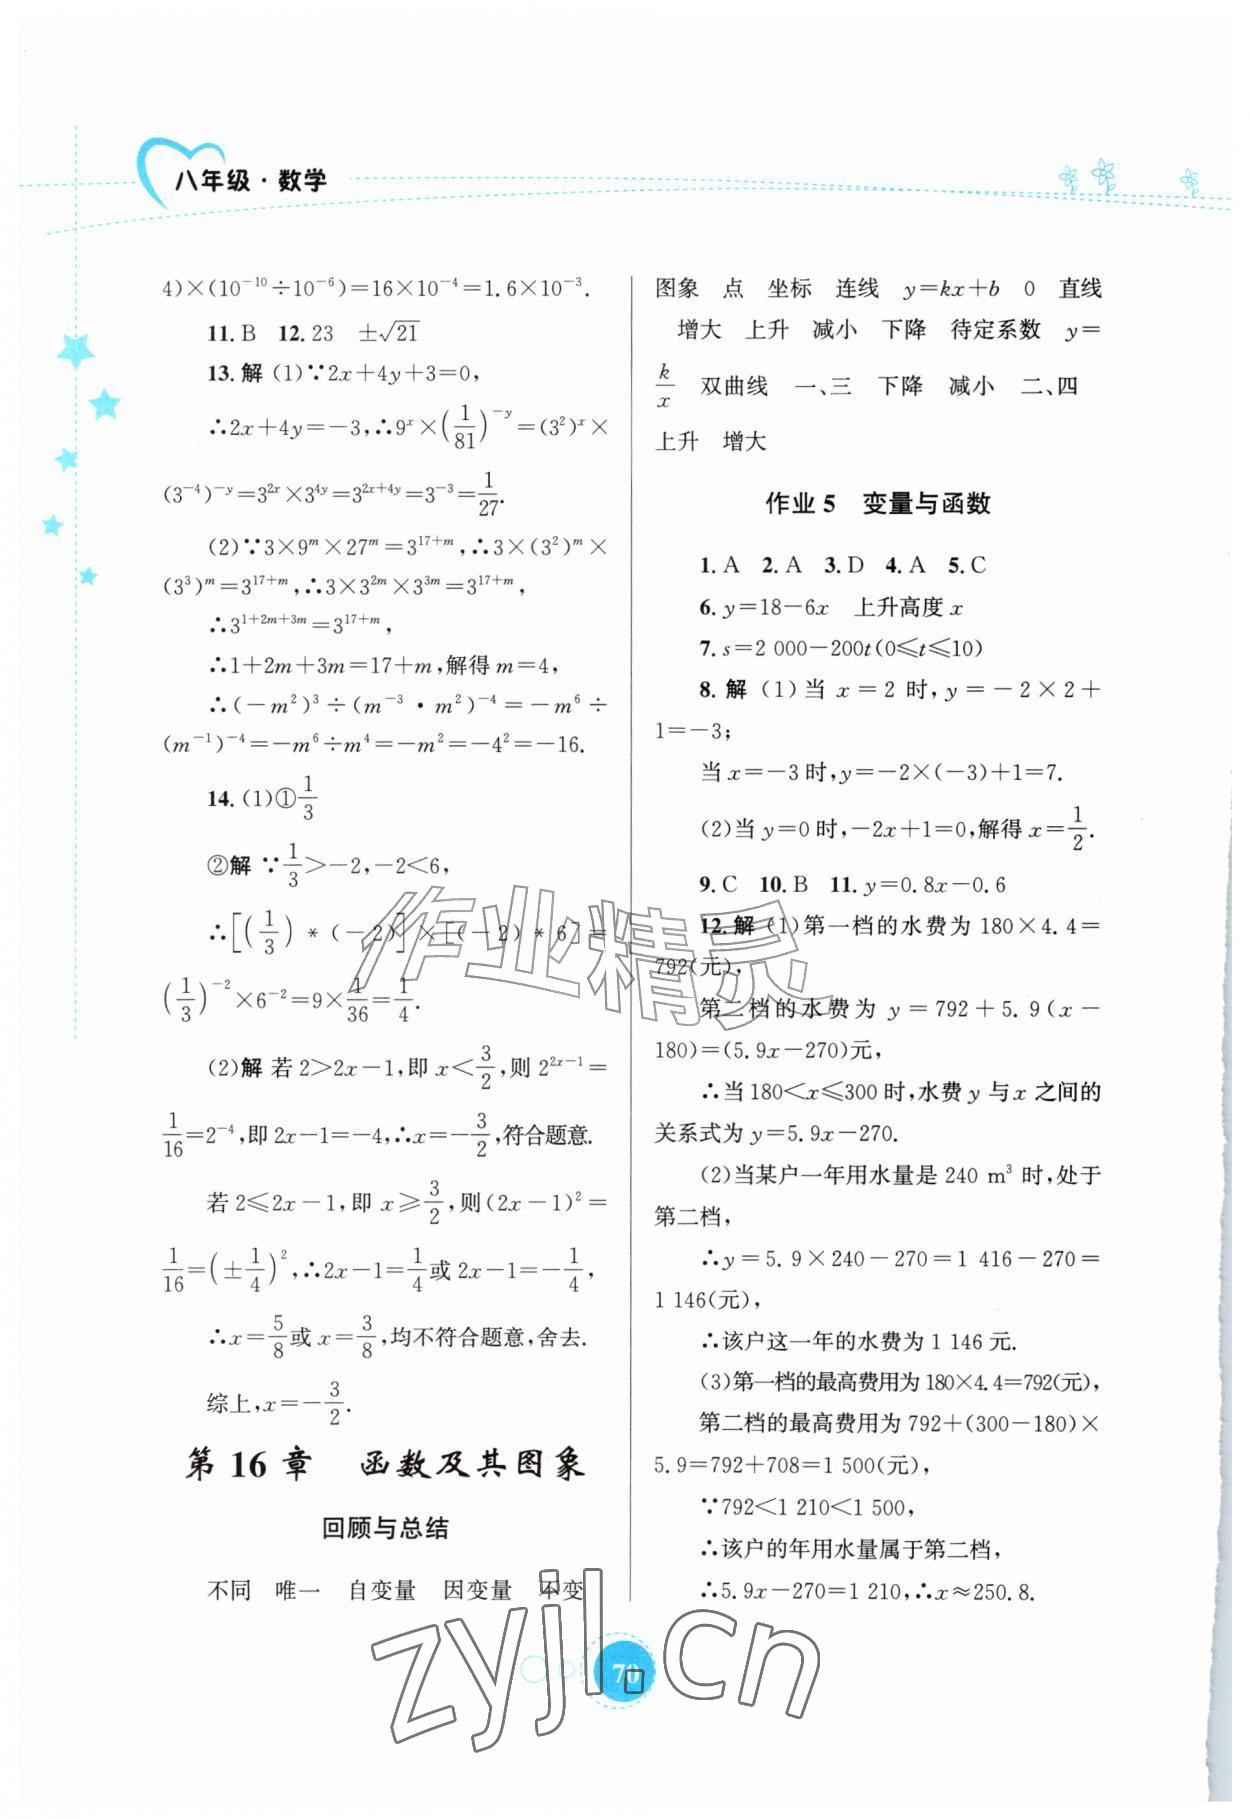 八年级·数学
4)×(10⁻¹⁰÷10⁻⁶)=16×10⁻⁴=1.6×10⁻³.
11. B 12. 23 ±√21
13. 解 (1)∵2x+4y+3=0,
∴2x+4y=-3,∴9ˣ×(1/81)⁻ʸ=(3²)ˣ×
(3⁻⁴)⁻ʸ=3²ˣ×3⁴ʸ=3²ˣ⁺⁴ʸ=3⁻³=1/27.
(2)∵3×9ᵐ×27ᵐ=3¹⁷⁺ᵐ,∴3×(3²)ᵐ×
(3³)ᵐ=3¹⁷⁺ᵐ,∴3×3²ᵐ×3³ᵐ=3¹⁷⁺ᵐ,
∴3¹⁺²ᵐ⁺³ᵐ=3¹⁷⁺ᵐ,
∴1+2m+3m=17+m,解得m=4,
∴(-m²)³÷(m⁻³·m²)⁻⁴=-m⁶÷
(m⁻¹)⁻⁴=-m⁶÷m⁴=-m²=-4²=-16.
14. (1)①1/3
②解 ∵1/3>-2,-2<6,
∴[(1/3)*(-2)]×[(-2)*6]=
(1/3)⁻²×6⁻²=9×1/36=1/4.
(2)解 若2>2x-1,即x<3/2,则2²ˣ⁻¹=
1/16=2⁻⁴,即2x-1=-4,∴x=-3/2,符合题意.
若2≤2x-1,即x≥3/2,则(2x-1)²=
1/16=(±1/4)²,∴2x-1=1/4或2x-1=-1/4,
∴x=5/8或x=3/8,均不符合题意,舍去.
综上,x=-3/2.
第16章 函数及其图象
回顾与总结
不同 唯一 自变量 因变量 不变
图象 点 坐标 连线 y=kx+b 0 直线
增大 上升 减小 下降 待定系数 y=
k/x 双曲线 一、三 下降 减小 二、四
上升 增大
作业5 变量与函数
1. A 2. A 3. D 4. A 5. C
6. y=18-6x 上升高度x
7. s=2 000-200t(0≤t≤10)
8. 解 (1)当x=2时,y=-2×2+
1=-3;
当x=-3时,y=-2×(-3)+1=7.
(2)当y=0时,-2x+1=0,解得x=1/2.
9. C 10. B 11. y=0.8x-0.6
12. 解 (1)第一档的水费为180×4.4=
792(元),
第二档的水费为y=792+5.9(x-
180)=(5.9x-270)元,
∴当180<x≤300时,水费y与x之间的
关系式为y=5.9x-270.
(2)当某户一年用水量是240 m³时,处于
第二档,
∴y=5.9×240-270=1 416-270=
1 146(元),
∴该户这一年的水费为1 146元.
(3)第一档的最高费用为180×4.4=792(元),
第二档的最高费用为792+(300-180)×
5.9=792+708=1 500(元),
∵792<1 210<1 500,
∴该户的年用水量属于第二档,
∴5.9x-270=1 210,∴x≈250.8.
作业精灵
zyjl.cn
70